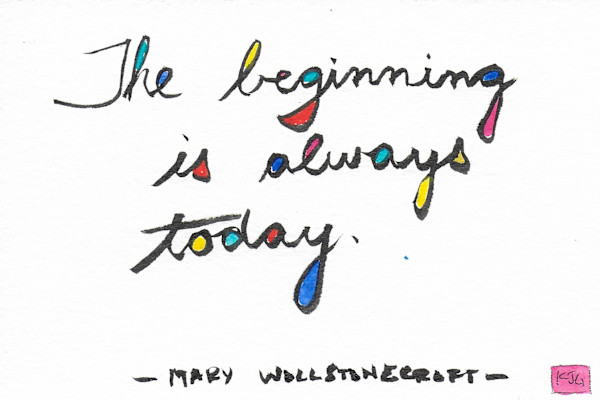 The beginning
is always
today.
— MARY WOLLSTONECROFT —
KJG